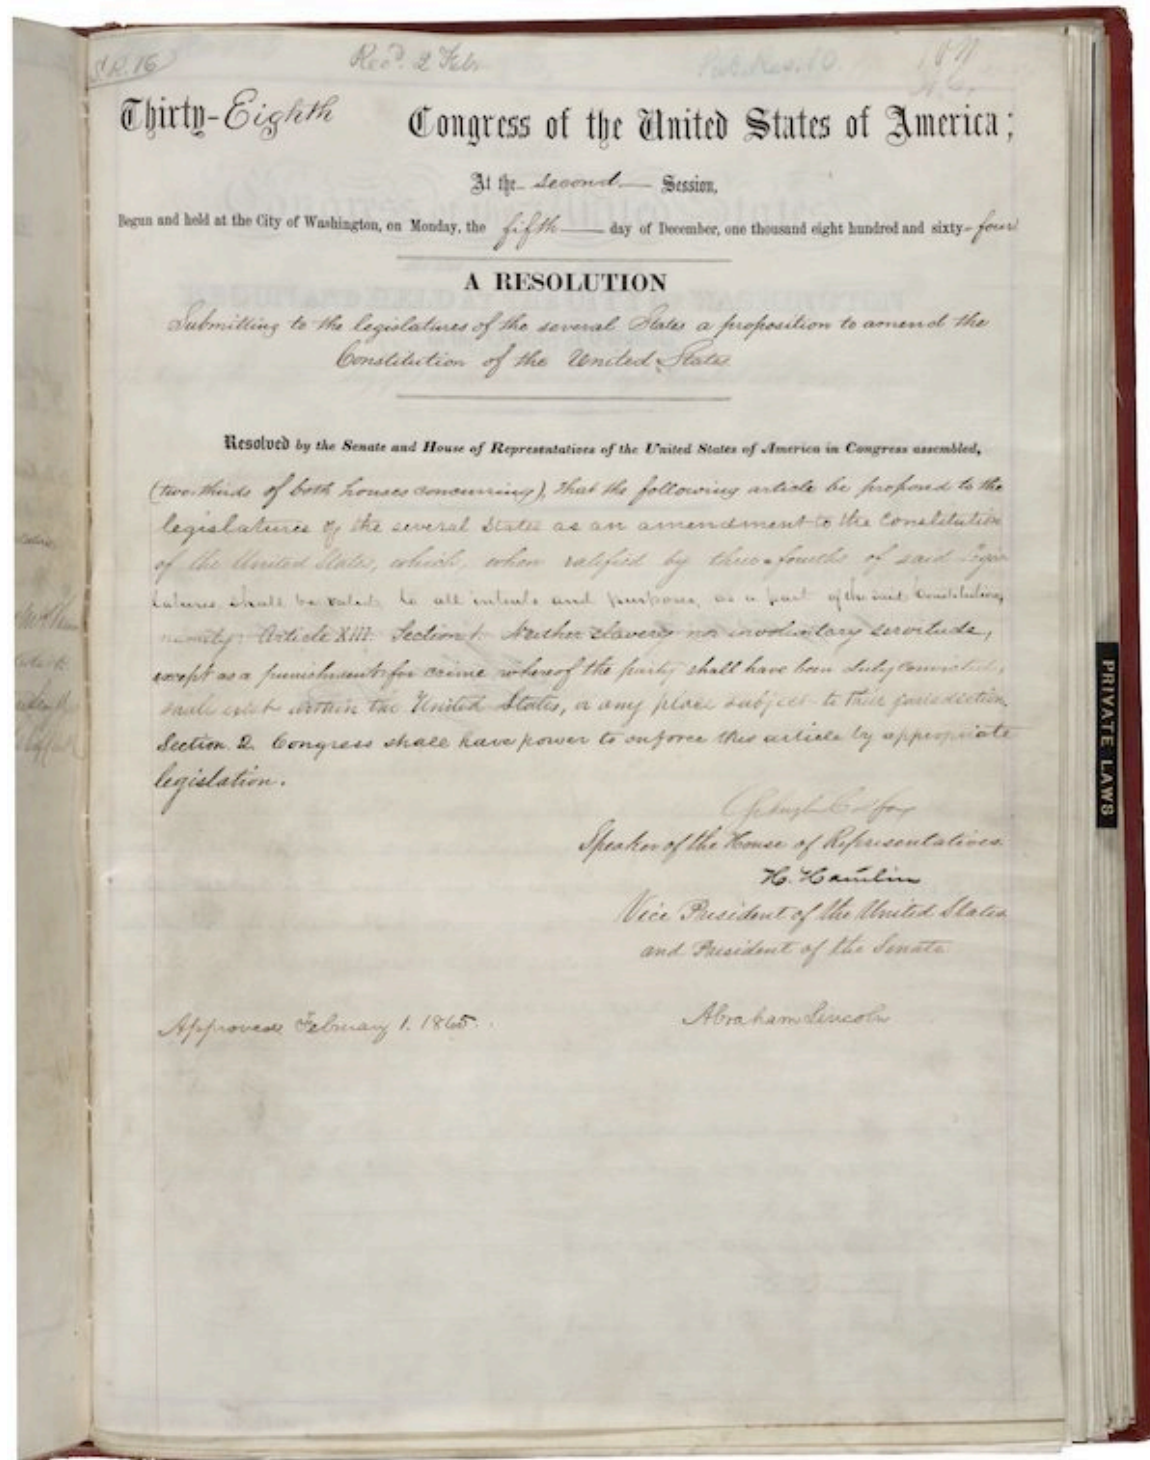 S.R. 16
Rec'd. 2 Feb.
Pub. Res. 10
Thirty-Eighth Congress of the United States of America;
At the second Session,
Begun and held at the City of Washington, on Monday, the fifth day of December, one thousand eight hundred and sixty-four
A RESOLUTION
Submitting to the legislatures of the several States a proposition to amend the
Constitution of the United States.
Resolved by the Senate and House of Representatives of the United States of America in Congress assembled,
(two-thirds of both houses concurring), That the following article be proposed to the
legislatures of the several States as an amendment to the Constitution
of the United States, which, when ratified by three-fourths of said Legis-
latures, shall be valid, to all intents and purposes, as a part of the said Constitution,
namely: Article XIII. Section 1. Neither slavery nor involuntary servitude,
except as a punishment for crime whereof the party shall have been duly convicted,
shall exist within the United States, or any place subject to their jurisdiction.
Section 2. Congress shall have power to enforce this article by appropriate
legislation.
Schuyler Colfax
Speaker of the House of Representatives.
H. Hamlin
Vice President of the United States
and President of the Senate
Approved February 1. 1865.
Abraham Lincoln
PRIVATE LAWS